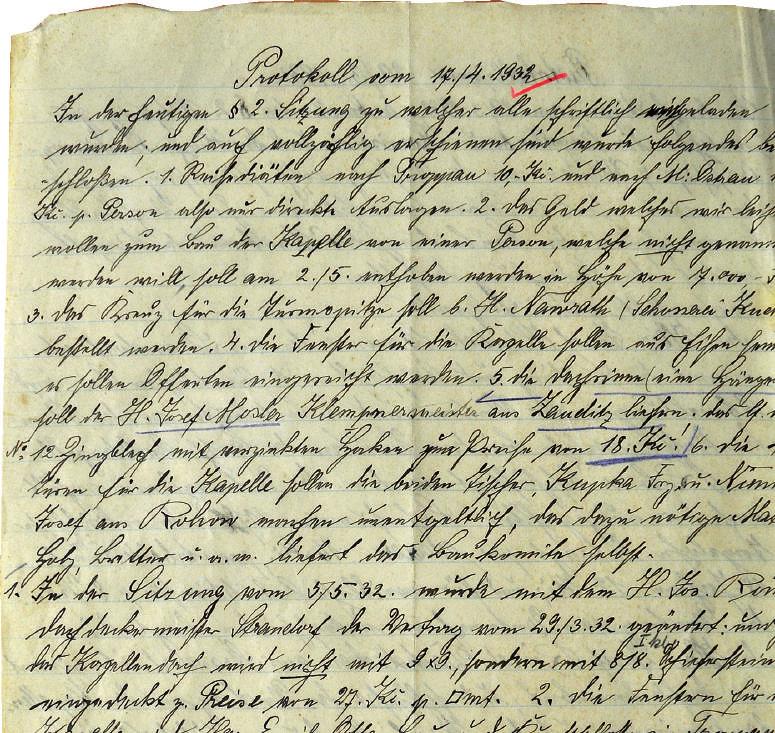 Protokoll vom 17./4. 1932
In der heutigen § 2. Sitzung zu welcher alle schriftlich eingeladen
wurden, und auch vollzählig erschienen sind wurde folgendes be
-schloßen. 1. Reisediäten nach Troppau 10,- Kč. und nach M: Ostrau
Kč. p. Person also nur direkte Auslagen. 2. das Geld welches wir leih
wollen zum Bau der Kapelle von einer Person, welche nicht genann
werden will, soll am 2./5. enthoben werden in Höhe von 7.000 -
3. das Kreuz für die Turmspitze soll b. H. Nawrath
bestellt werden. 4. die Fenster für die Kapelle sollen aus Eisen
es sollen Offerten eingereicht werden. 5. die dachrinne (eine Hänge
soll der H. Josef Mosler Klempnermeister aus Zauditz liefern. das
No 12. Zingblech mit verzinkten Haken zum Preise von 18. Kč. 6. die
türen für die Kapelle sollen die beiden Tischer, Kupka Frz. u.
Josef aus Rohow machen unentgeltlich, das dazu nötige Ma
Holz, Bretter u.a.m. liefert das Baukomite selbst.
1. In der Sitzung vom 5/5. 32. wurde mit dem H. Jos.
dachdeckermeister Strandorf der Vertrag vom 29./3. 32. geändert: und
das Kapellendach wird nicht mit 9x9., sondern mit 8/8. Schieferstein
eingedeckt z. Preise von 27. Kč. p. □mt. 2. die Fenstern für